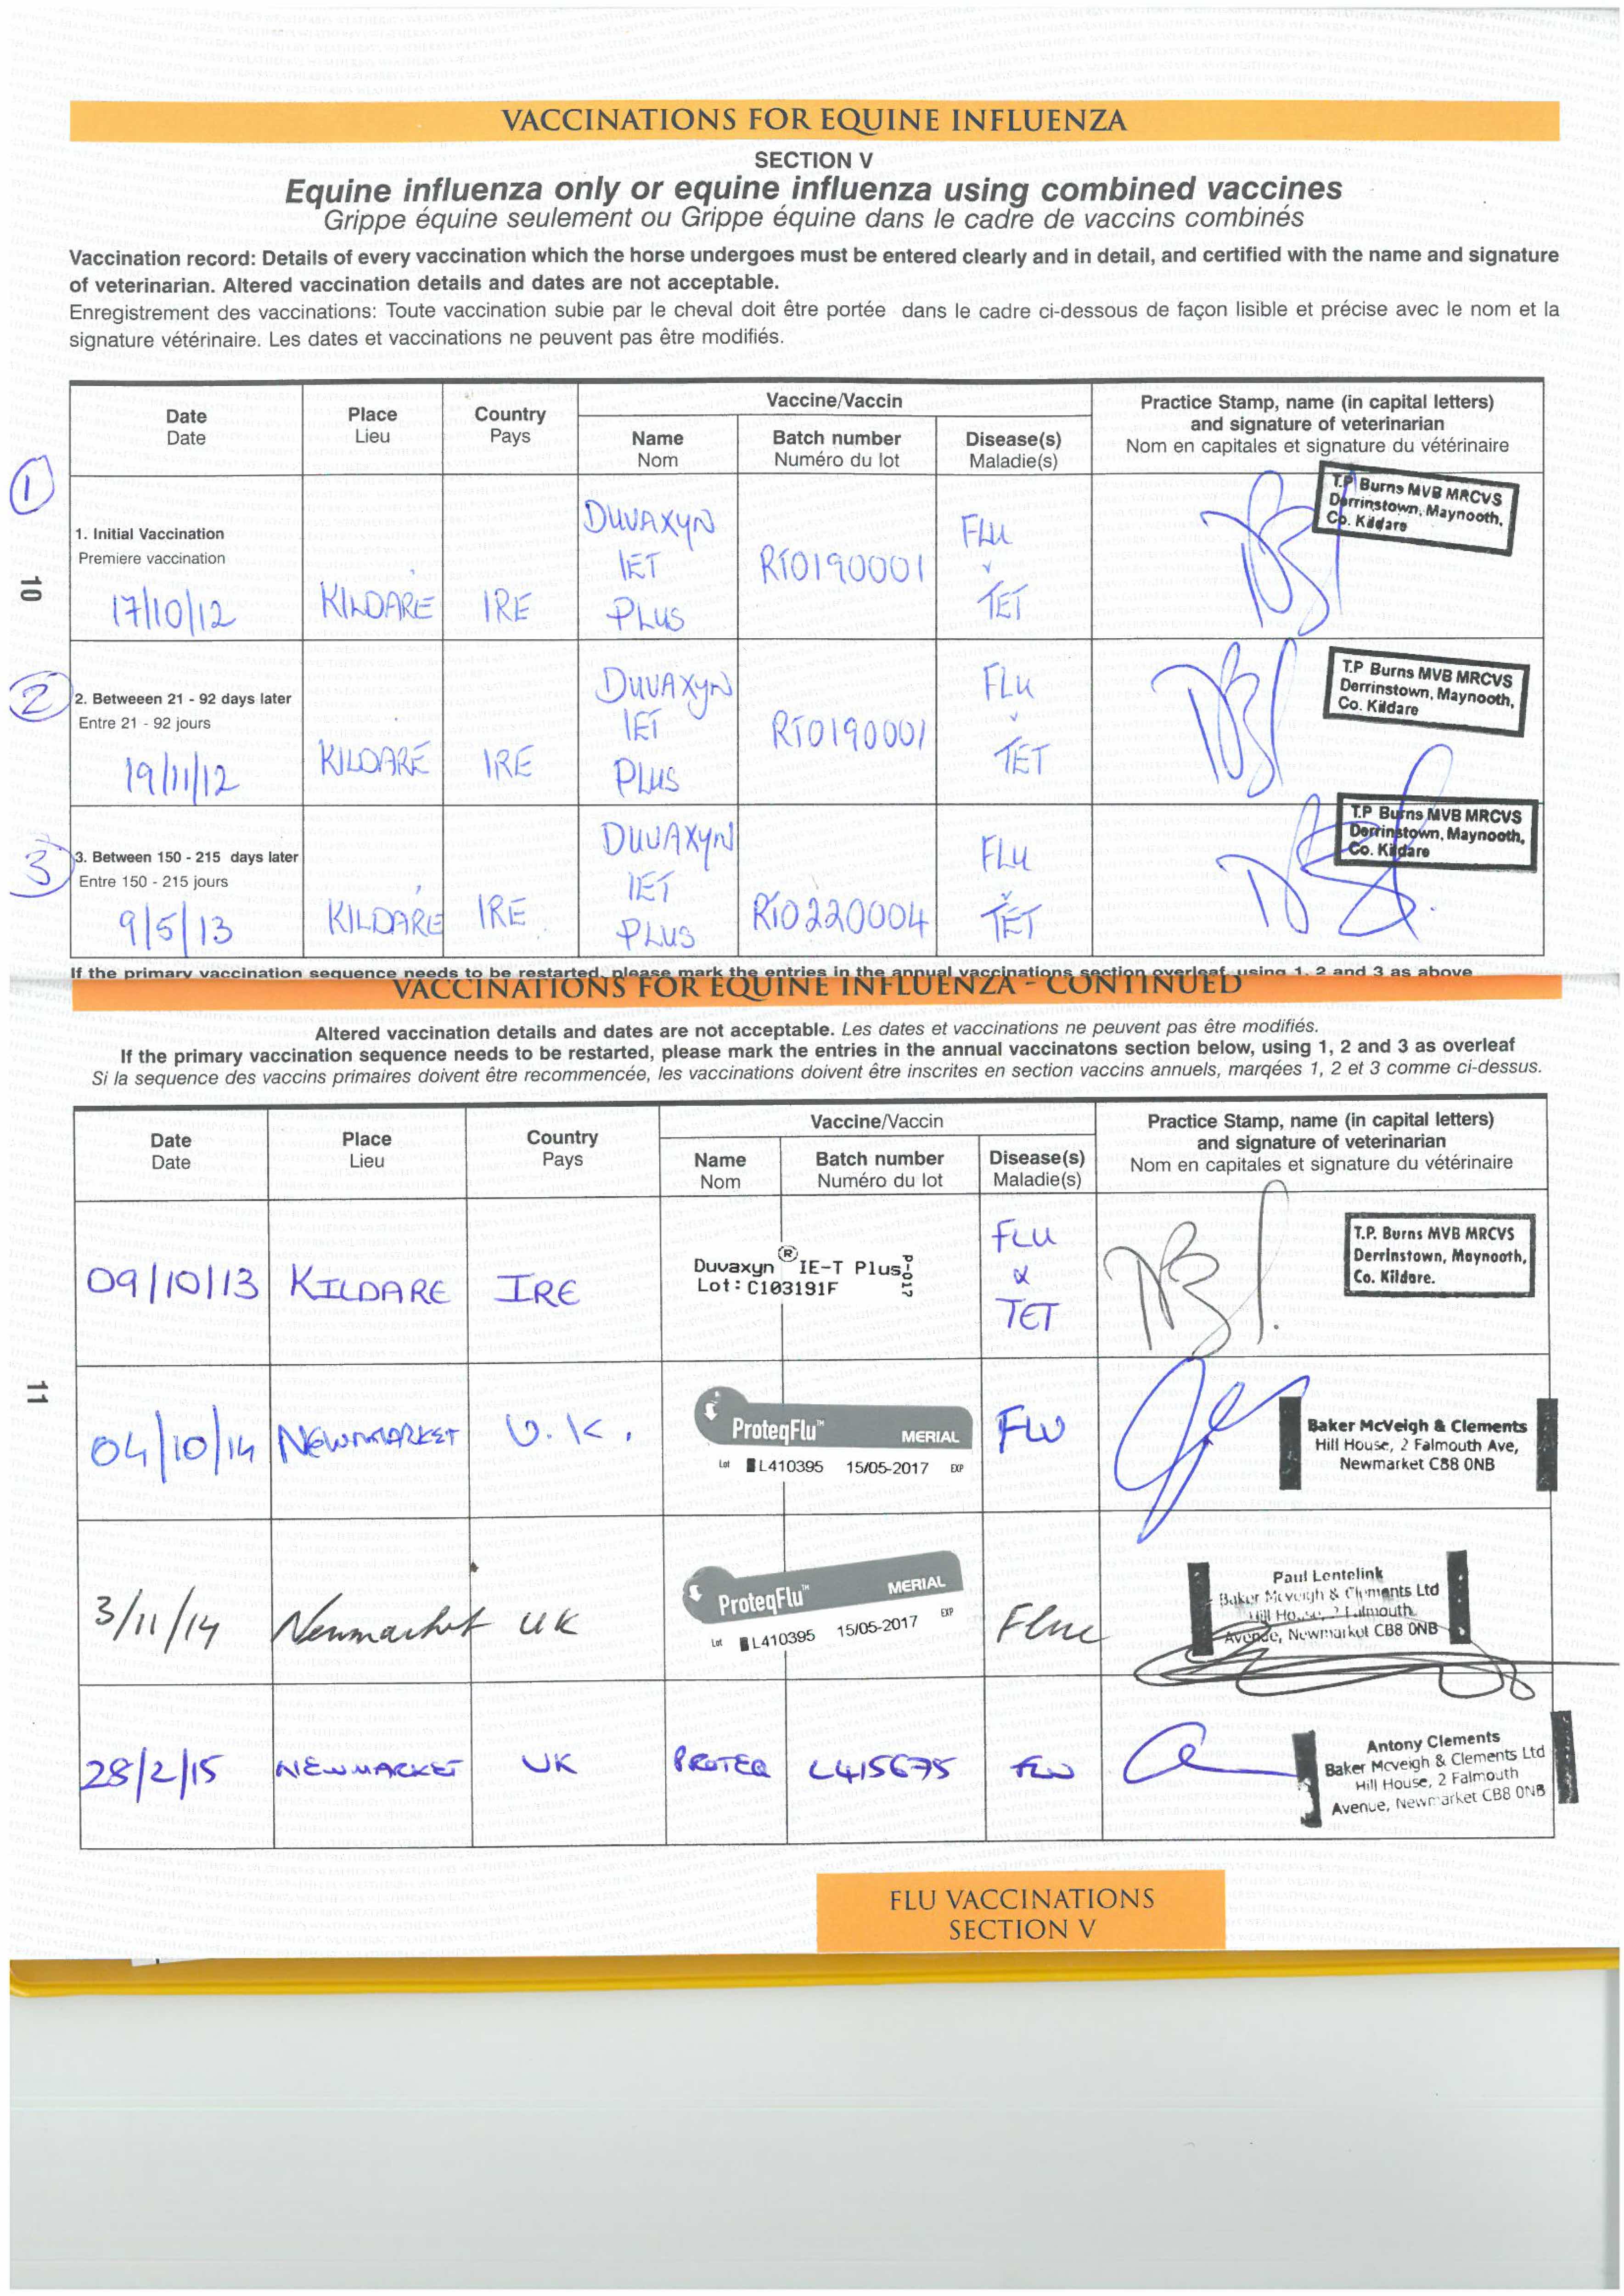 VACCINATIONS FOR EQUINE INFLUENZA
SECTION V
Equine influenza only or equine influenza using combined vaccines
Grippe équine seulement ou Grippe équine dans le cadre de vaccins combinés
Vaccination record: Details of every vaccination which the horse undergoes must be entered clearly and in detail, and certified with the name and signature
of veterinarian. Altered vaccination details and dates are not acceptable.
Enregistrement des vaccinations: Toute vaccination subie par le cheval doit être portée dans le cadre ci-dessous de façon lisible et précise avec le nom et la
signature vétérinaire. Les dates et vaccinations ne peuvent pas être modifiés.
Date
Date
Place
Lieu
Country
Pays
Vaccine/Vaccin
Name
Nom
Batch number
Numéro du lot
Disease(s)
Maladie(s)
Practice Stamp, name (in capital letters)
and signature of veterinarian
Nom en capitales et signature du vétérinaire
1
1. Initial Vaccination
Premiere vaccination
17/10/12
KILDARE
IRE
DUVAXYN
IET
PLUS
RT0190001
FLU
TET
T.P Burns MVB MRCVS
Derrinstown, Maynooth,
Co. Kildare
10
2
2. Betweeen 21 - 92 days later
Entre 21 - 92 jours
19/11/12
KILDARE
IRE
DUVAXYN
IET
PLUS
RT0190001
FLU
TET
T.P Burns MVB MRCVS
Derrinstown, Maynooth,
Co. Kildare
3
3. Between 150 - 215 days later
Entre 150 - 215 jours
9/5/13
KILDARE
IRE
DUVAXYN
IET
PLUS
RT0220004
FLU
TET
T.P Burns MVB MRCVS
Derrinstown, Maynooth,
Co. Kildare
If the primary vaccination sequence needs to be restarted, please mark the entries in the annual vaccinations section overleaf, using 1, 2 and 3 as above
VACCINATIONS FOR EQUINE INFLUENZA - CONTINUED
Altered vaccination details and dates are not acceptable. Les dates et vaccinations ne peuvent pas être modifiés.
If the primary vaccination sequence needs to be restarted, please mark the entries in the annual vaccinatons section below, using 1, 2 and 3 as overleaf
Si la sequence des vaccins primaires doivent être recommencée, les vaccinations doivent être inscrites en section vaccins annuels, marqées 1, 2 et 3 comme ci-dessus.
Date
Date
Place
Lieu
Country
Pays
Vaccine/Vaccin
Name
Nom
Batch number
Numéro du lot
Disease(s)
Maladie(s)
Practice Stamp, name (in capital letters)
and signature of veterinarian
Nom en capitales et signature du vétérinaire
09/10/13
KILDARE
IRE
Duvaxyn ® IE-T Plus
Lot: C103191F
P-017
FLU
&
TET
T.P. Burns MVB MRCVS
Derrinstown, Maynooth,
Co. Kildare.
11
04/10/14
NEWMARKET
U.K.
ProteqFlu™ MERIAL
Lot L410395 15/05-2017 EXP
FLU
Baker McVeigh & Clements
Hill House, 2 Falmouth Ave,
Newmarket CB8 0NB
3/11/14
Newmarket
UK
ProteqFlu™ MERIAL
Lot L410395 15/05-2017 EXP
Flue
Paul Lentelink
Baker Mcveigh & Clements Ltd
Hill House, 2 Falmouth
Avenue, Newmarket CB8 0NB
28/2/15
NEWMARKET
UK
PROTEQ
L415675
FLU
Antony Clements
Baker Mcveigh & Clements Ltd
Hill House, 2 Falmouth
Avenue, Newmarket CB8 0NB
FLU VACCINATIONS
SECTION V